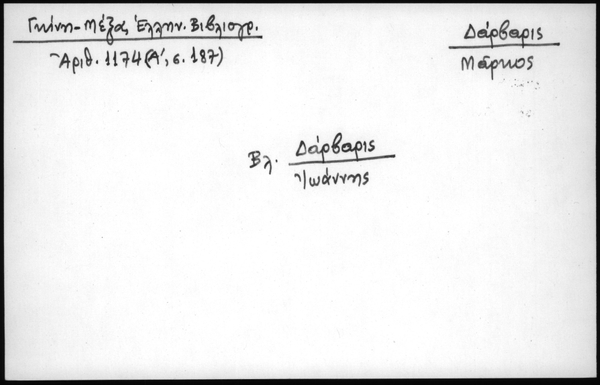 Γκίνη-Μέξα, Ἑλλην. Βιβλιογρ.
Ἀριθ. 1174 (Α', σ. 187)
Δάρβαρις
Μάρκος
Βλ. Δάρβαρις
Ἰωάννης